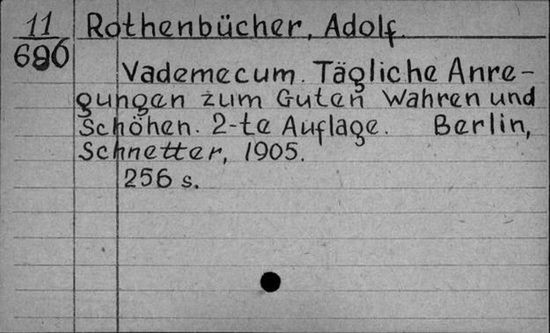 11 Rothenbücher, Adolf.
690
Vademecum. Tägliche Anre-
gungen zum Guten Wahren und
Schöhen. 2-te Auflage. Berlin,
Schnetter, 1905.
256 s.